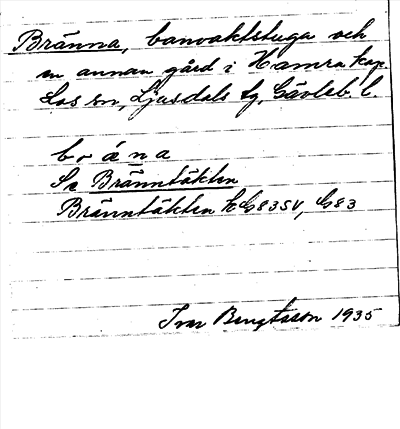 Bränna, banvaktstuga och
en annan gård i Hamra kap.
Los sn, Ljusdals tg, Gävleb. l.
br á n a
Se Bränntäkten
Bränntäkten
Ivar Bengtsson 1935